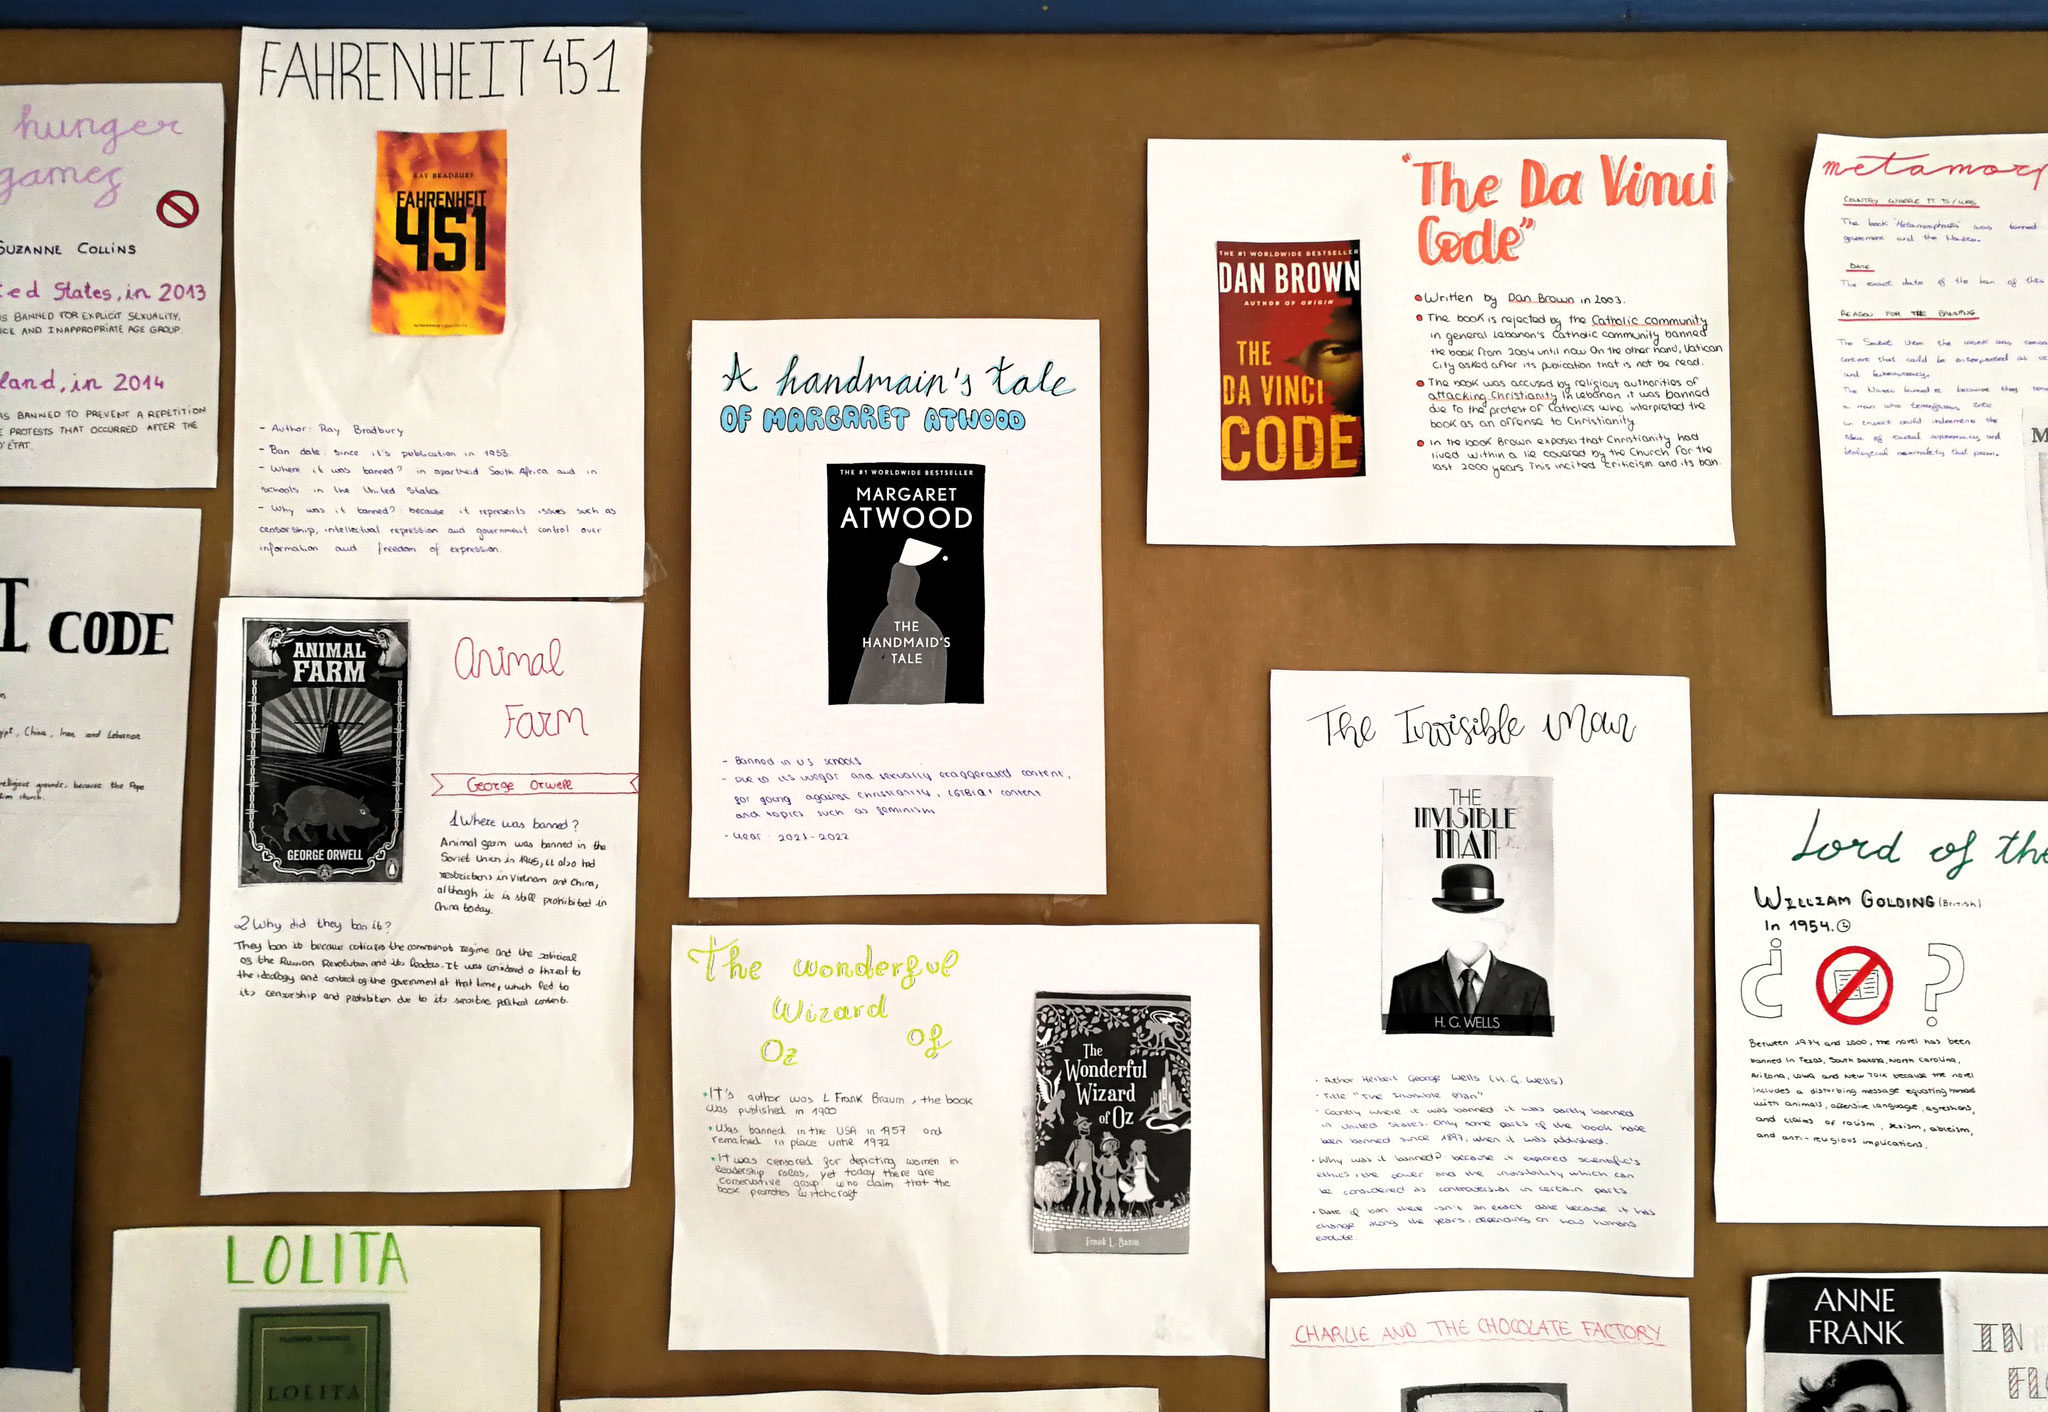 hunger
games
SUZANNE COLLINS
ted States, in 2013
S BANNED FOR EXPLICIT SEXUALITY,
CE AND INAPPROPRIATE AGE GROUP.
land, in 2014
AS BANNED TO PREVENT A REPETITION
E PROTESTS THAT OCCURRED AFTER THE
D'ÉTAT.
FAHRENHEIT 451
RAY BRADBURY
FAHRENHEIT
451
- Author: Ray Bradbury
- Ban date: since it's publication in 1953.
- Where it was banned? in apartheid South Africa and in
schools in the United States.
- Why was it banned? because it represents issues such as
censorship, intellectual repression and government control over
information and freedom of expression.
I CODE
ypt, China, Iran and Lebanon
religious grounds, because the Pope
church.
ANIMAL
FARM
GEORGE ORWELL
Animal
Farm
George Orwell
1 Where was banned?
Animal farm was banned in the
Soviet Union in 1945, it also had
restrictions in Vietnam and China,
although it is still prohibited in
China today.
2 Why did they ban it?
They ban it because criticizes the communist regime and the satirical
of the Russian Revolution and its leaders. It was considered a threat to
the ideology and control of the government at that time, which led to
its censorship and prohibition due to its sensitive political content.
LOLITA
LOLITA
A handmain's tale
OF MARGARET ATWOOD
THE #1 WORLDWIDE BESTSELLER
MARGARET
ATWOOD
THE
HANDMAID'S
TALE
- Banned in US schools
- Due to its vulgar and sexually exaggerated content,
for going against christianity, LGTBIQ+ content
and topics such as feminism
- year: 2021-2022
The wonderful
Wizard of
Oz
The
Wonderful
Wizard
of Oz
Frank L. Baum
• It's author was L Frank Braum, the book
was published in 1900
• Was banned in the USA in 1957 and
remained in place until 1972
• It was censored for depicting women in
leadership roles, yet today there are
conservative group who claim that the
book promotes witchcraft
"The Da Vinci
Code"
THE #1 WORLDWIDE BESTSELLER
DAN BROWN
AUTHOR OF ORIGIN
THE
DA VINCI
CODE
• Written by Dan Brown in 2003.
• The book is rejected by the Catholic community
in general Lebanon's Catholic community banned
the book from 2004 until now On the other hand, Vatican
City asked after its publication that is not be read.
• The book was accused by religious authorities of
attacking Christianity In Lebanon it was banned
due to the protest of Catholics who interpreted the
book as an offense to Christianity.
• In the book Brown exposes that Christianity had
lived within a lie covered by the Church for the
last 2000 years This incited criticism and its ban.
The Invisible Man
THE
INVISIBLE
MAN
H. G. WELLS
• Author: Herbert George Wells (H.G. Wells)
• Title "The Invisible Man"
• Country where it was banned it was partly banned
in United States. Only some parts of the book have
been banned since 1897, when it was published.
• Why was it banned? because it explored scientific's
ethics, the power and the invisibility which can
be considered as controversial in certain parts
• Date of ban there isn't an exact date because it has
change along the years, depending on how humans
evolute.
CHARLIE AND THE CHOCOLATE FACTORY
metamorp
COUNTRY WHERE IT IS/WAS
The book "Metamorphosis" was banned
goverment and the Nazis.
DATE
The exact date of the ban of this
REASON FOR THE BANNING
The Soviet Union the work was
content that could be interpreted as
and bureaucracy.
The Nazis banned it because they
a man who transforms into
an insect could undermine the
idea of racial supremacy and
biological normality that
M
Lord of the
WILLIAM GOLDING (British)
In 1954.
¿ ?
Between 1974 and 2000, the novel has been
banned in Texas, South Dakota, North Carolina,
Arizona, Iowa and New York because the novel
includes a disturbing message equating humans
with animals, offensive language, agressions,
and claims of racism, sexism, ableism,
and anti-religious implications.
ANNE
FRANK
IN
FL